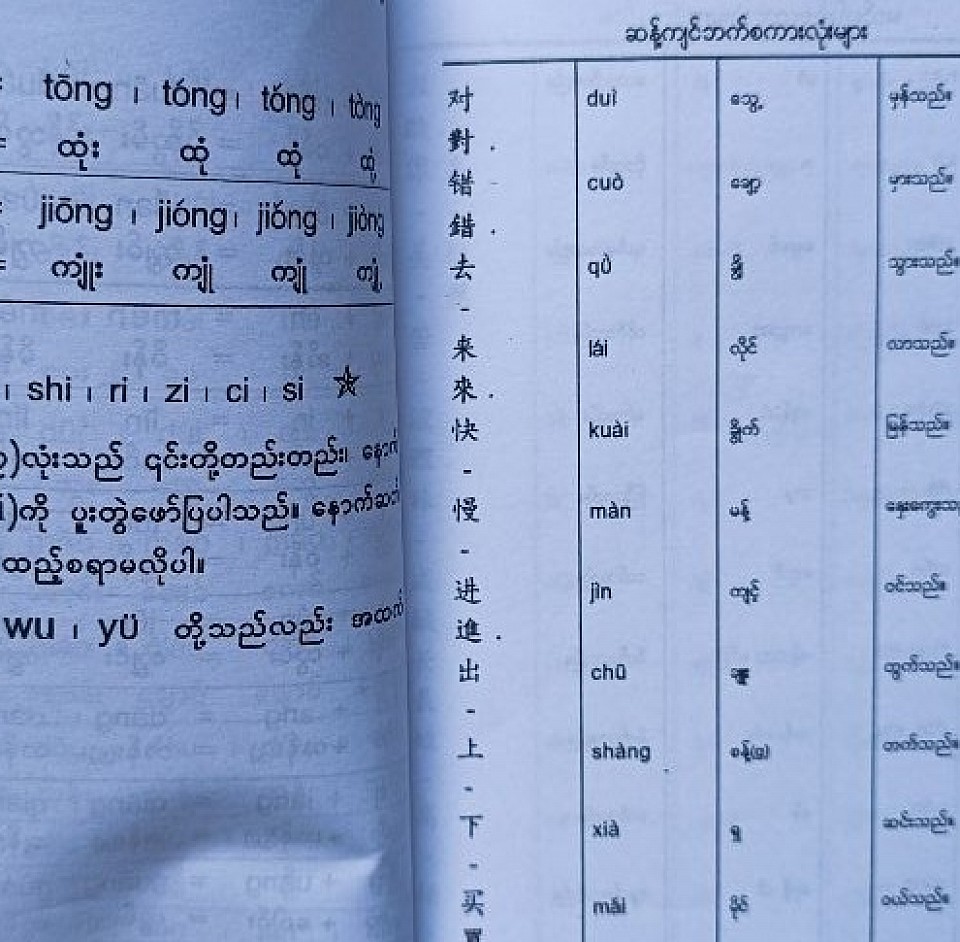 tōng ၊ tóng ၊ tǒng ၊ tòng
ထုံး ထုံ ထုံ ထုံ့
jiōng ၊ jióng ၊ jiǒng ၊ jiòng
ကျုံး ကျုံ ကျုံ ကျုံ့
၊ shi ၊ ri ၊ zi ၊ ci ၊ si
)လုံးသည် ၎င်းတို့တည်းတည်း၊ နောက်
)ကို ပူးတွဲဖော်ပြပါသည်။ နောက်ဆက်
ထည့်စရာမလိုပါ။
wu ၊ yü တို့သည်လည်း အထက်
ဆန့်ကျင်ဘက်စကားလုံးများ
对 duì သွေ့ မှန်သည်။
對 .
错 cuò ချော့ မှားသည်။
錯 .
去 qǜ ချွီ သွားသည်။
-
来 lái လိုင် လာသည်။
來 .
快 kuài ခွိုက် မြန်သည်။
-
慢 màn မန့် နှေးကွေးသည်
-
进 jìn ကျင့် ဝင်သည်။
進 .
出 chū ထွက်သည်။
-
上 shàng စန့်(g) တက်သည်။
-
下 xià ရှ ဆင်းသည်။
-
买 mǎi မိုင် ဝယ်သည်။
買